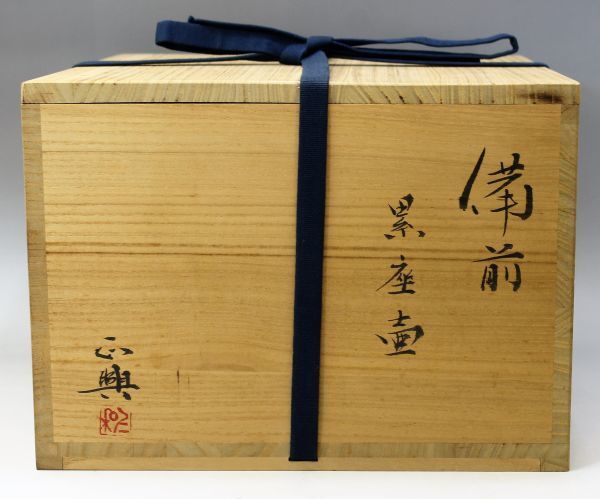 備前
累座壷
正興